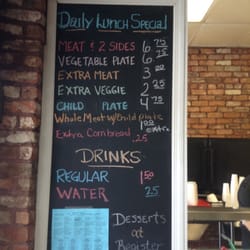 Daily Lunch Special
MEAT & 2 SIDES 6.75
VEGETABLE PLATE 6.75
EXTRA MEAT 3.00
EXTRA VEGGIE 2.25
CHILD PLATE 4.75
Whole Meat w/Child plate 1.00 extra
Extra Cornbread .25
DRINKS
REGULAR 1.50
WATER .25
Desserts
at
Register